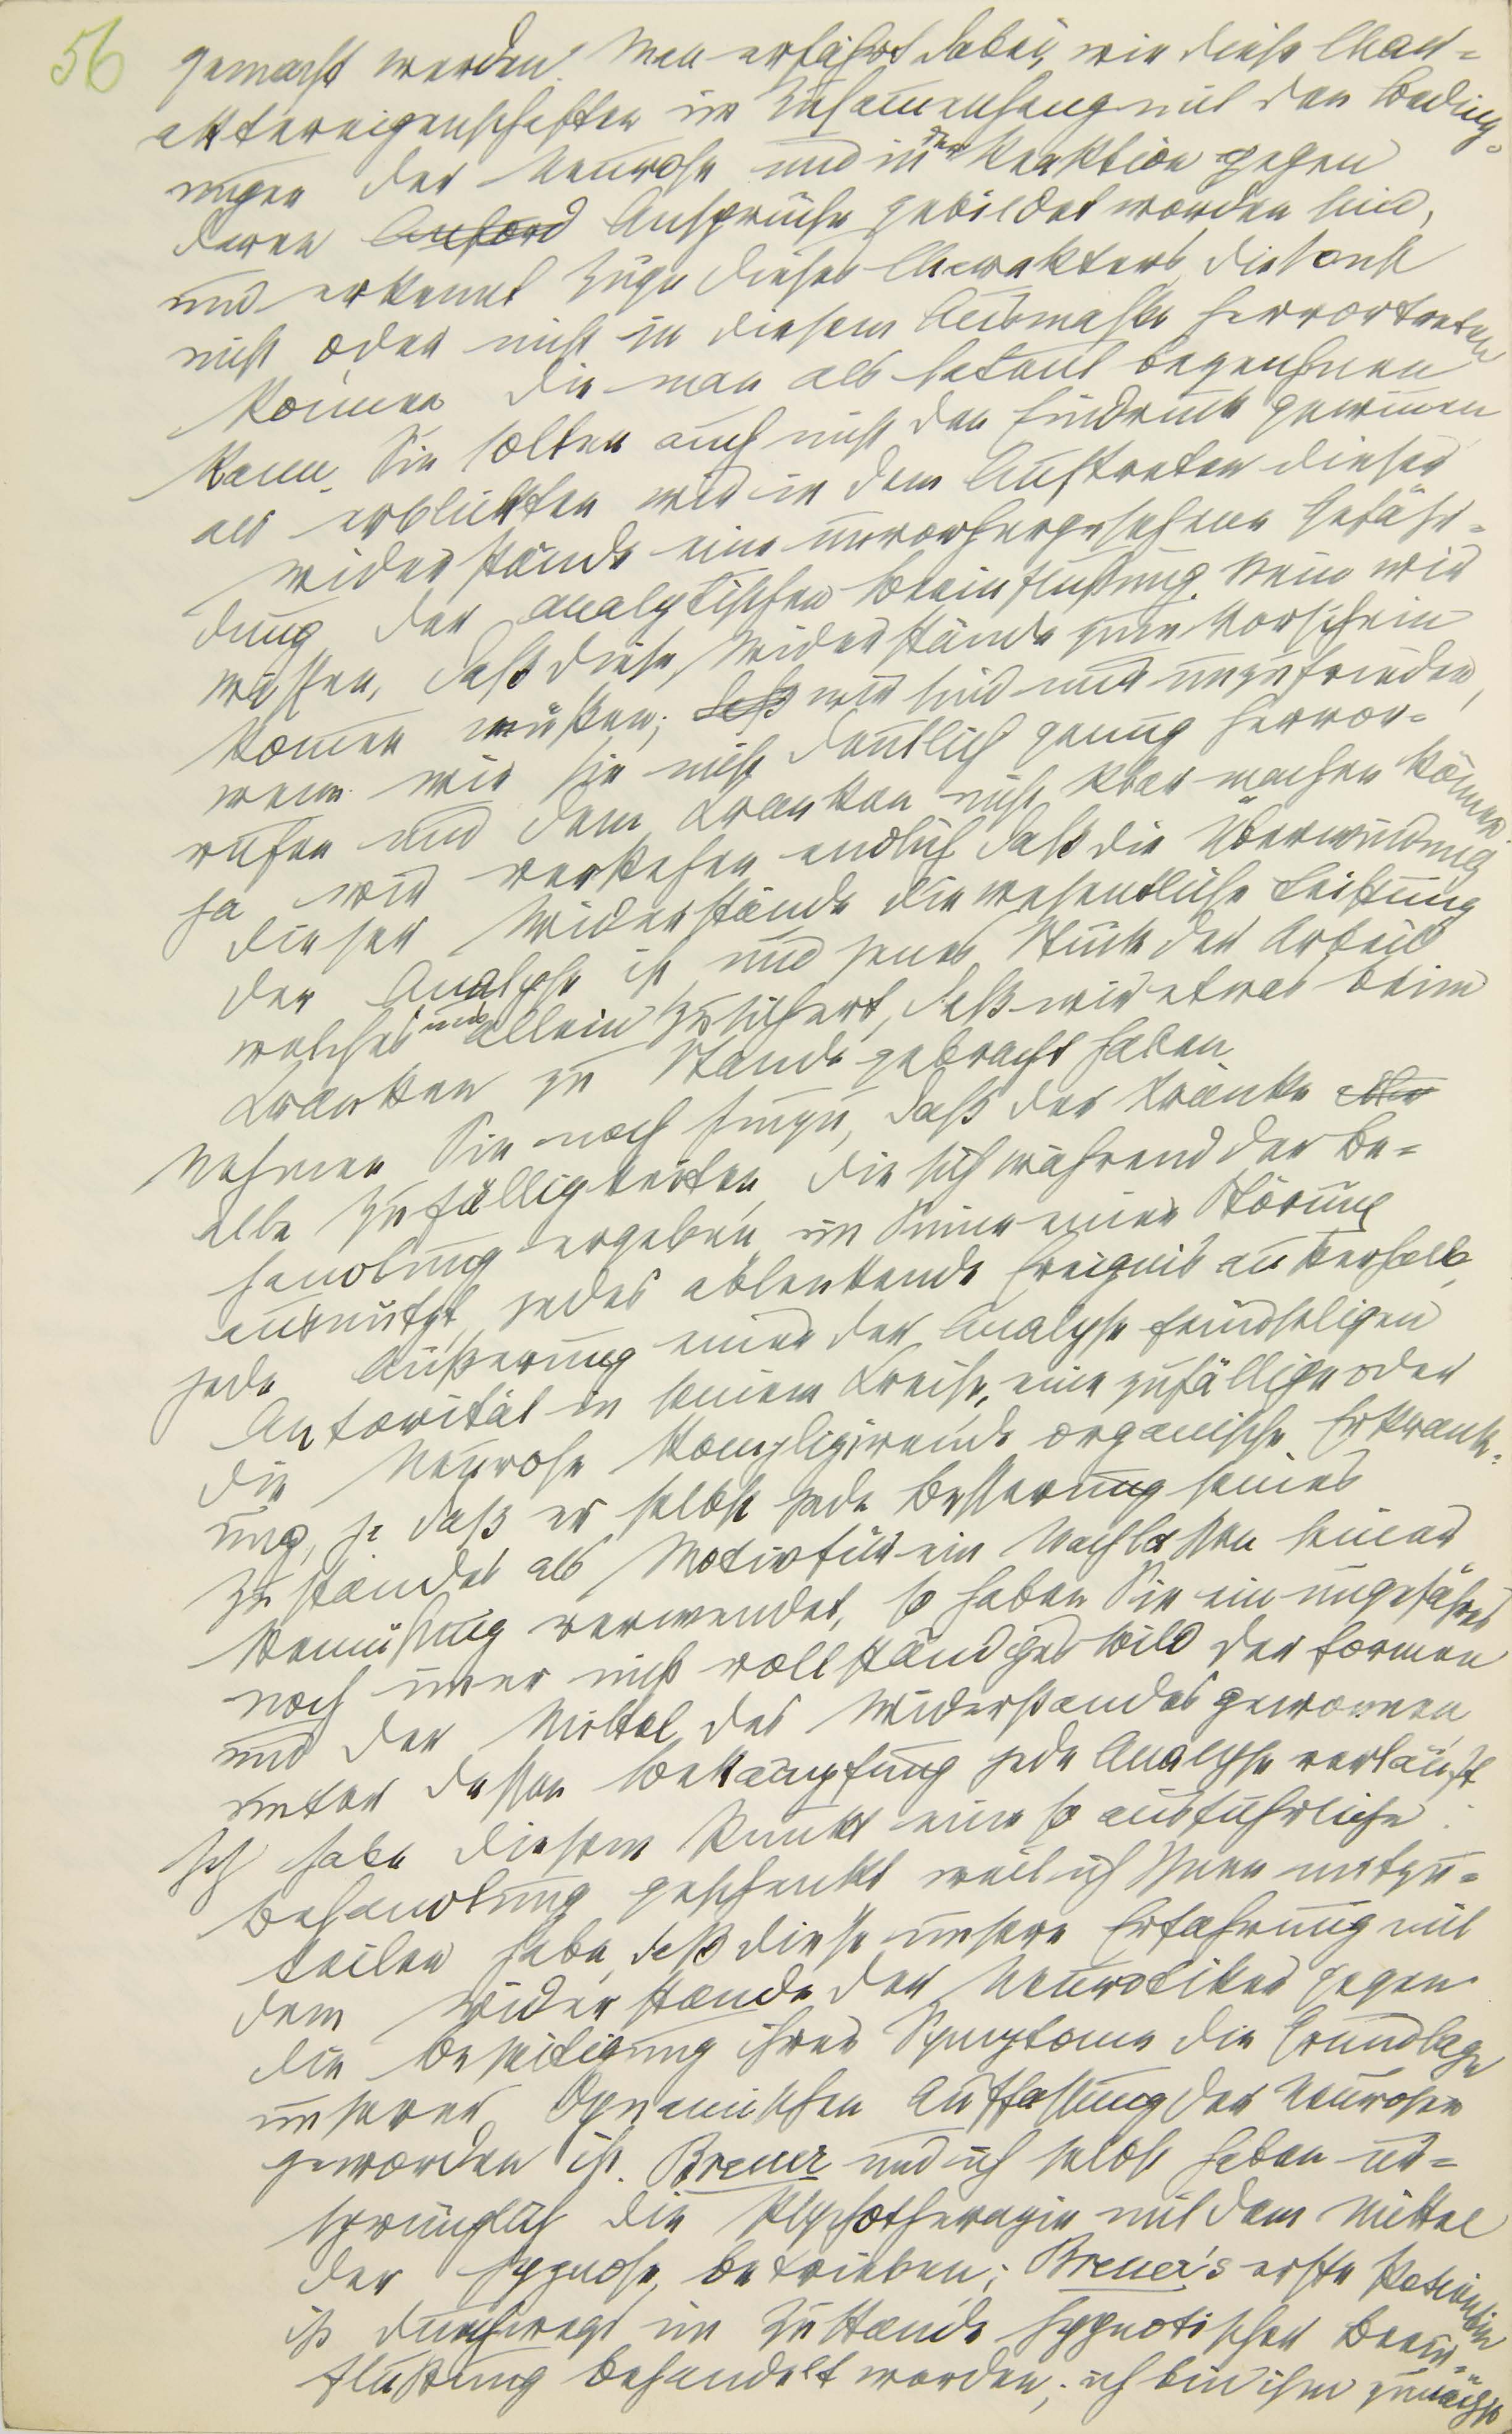 56
gemacht werden. Man erfährt dabei, wie diese Char-
aktereigenschaften im Zusammenhang mit den Beding-
ungen der Neurose und in der Reaktion gegen
deren Anford Ansprüche gebildet worden sind,
und erkennt Züge dieses Charakters, die sonst
nicht oder nicht in diesem Ausmaße hervortreten
können, die man als latent bezeichnen
kann. Sie sollen auch nicht den Eindruck gewinnen
als erblickten wir in dem Auftreten dieser
Widerstände eine unvorhergesehene Gefähr-
dung der analytischen Beeinflußung. Nein wir
wissen, daß diese Widerstände zum Vorschein
kommen müßen; daß wir sind nur unzufrieden,
wenn wir sie nicht deutlich genug hervor-
rufen und dem Kranken nicht klar machen können
Ja wir verstehen endlich daß die Überwindung
dieser Widerstände die wesentliche Leistung
der Analyse ist und jenes Stück der Arbeit
welches uns allein zusichert, daß wir etwas beim
Kranken zu Stande gebracht haben.
Nehmen Sie noch hinzu, daß der Kranke
alle Zufälligkeiten, die sich während der Be-
handlung ergeben im Sinne einer Störung
ausnützt, jedes ablenkende Ereignis außerhalb,
jede Äußerung einer der Analyse feindseligen
Autorität in seinem Kreise, eine zufällige oder
die Neurose komplizirende organische Erkrank-
ung, ja daß er selbst jede Besserung seines
Zustandes als Motiv für ein Nachlassen seiner
Bemühung verwendet, so haben Sie ein ungefähres
noch immer nicht vollständiges Bild der Formen
und der Mittel des Widerstandes gewonnen,
unter dessen Bekämpfung jede Analyse verläuft
Ich habe diesem Punkt eine so ausführliche
Behandlung geschenkt weil ich Ihnen mitzu-
teilen habe, daß diese unsere Erfahrung mit
dem Widerstande der Neurotiker gegen
die Beseitigung ihrer Symptome die Grundlage
unserer dynamischen Auffassung der Neurosen
geworden ist. Breuer und ich selbst haben ur-
sprünglich die Psychotherapie mit dem Mittel
der Hypnose betrieben; Breuer's erste Patientin
ist durchwegs im Zustande hypnotischer Beein-
flußung behandelt worden; ich bin ihm zunächst